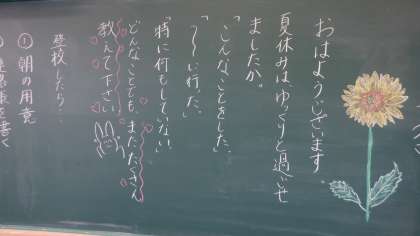 おはようございます。
夏休みはゆっくりと過ごせ
ましたか。
「こんなことをした。」
「〜へ行った。」
「特に何もしていない。」
どんなことでも、またたくさん
教えて下さい
登校したら…
① 朝の用意